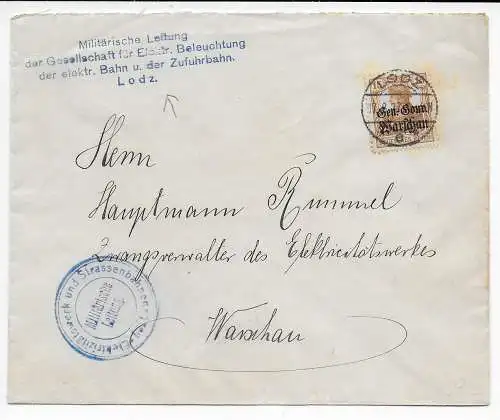 Militärische Leitung
der Gesellschaft für Elektr. Beleuchtung
der elektr. Bahn u. der Zufuhrbahn.
Lodz.
LODZ
Gen.-Gouv.
Warschau
Herrn
Hauptmann Rummel
Zwangsverwalter des Elektricitätswerkes
Warschau
Elektrizitätswerk und Strassenbahnen
Militärische
Leitung